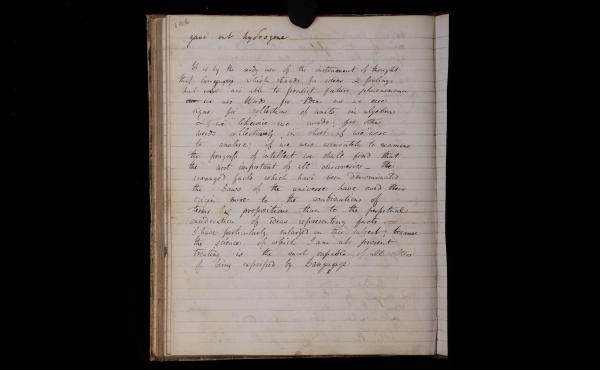 106
gave out hydrogene
It is by the ready use of the instrument of thought
that language which stands for ideas & feelings
that we are able to predict future phenomena
we use Words for Ideas as we use
signs for collections of units in algebra
& if we likewise use words for other
words collectively in short if we were
to analise; if we were accurately to examine
the progress of intellect we shall find that
the most important of all discoveries – the
arranged facts which have been denominated
the Laws of the universe have owed their
origin more to the combinations of
terms by propositions than to the perpetual
consideration of ideas representing facts
I have particularly enlarged on this subject; because
the science of which I am at present
treating is the most capable of all others
of being expressed by Language